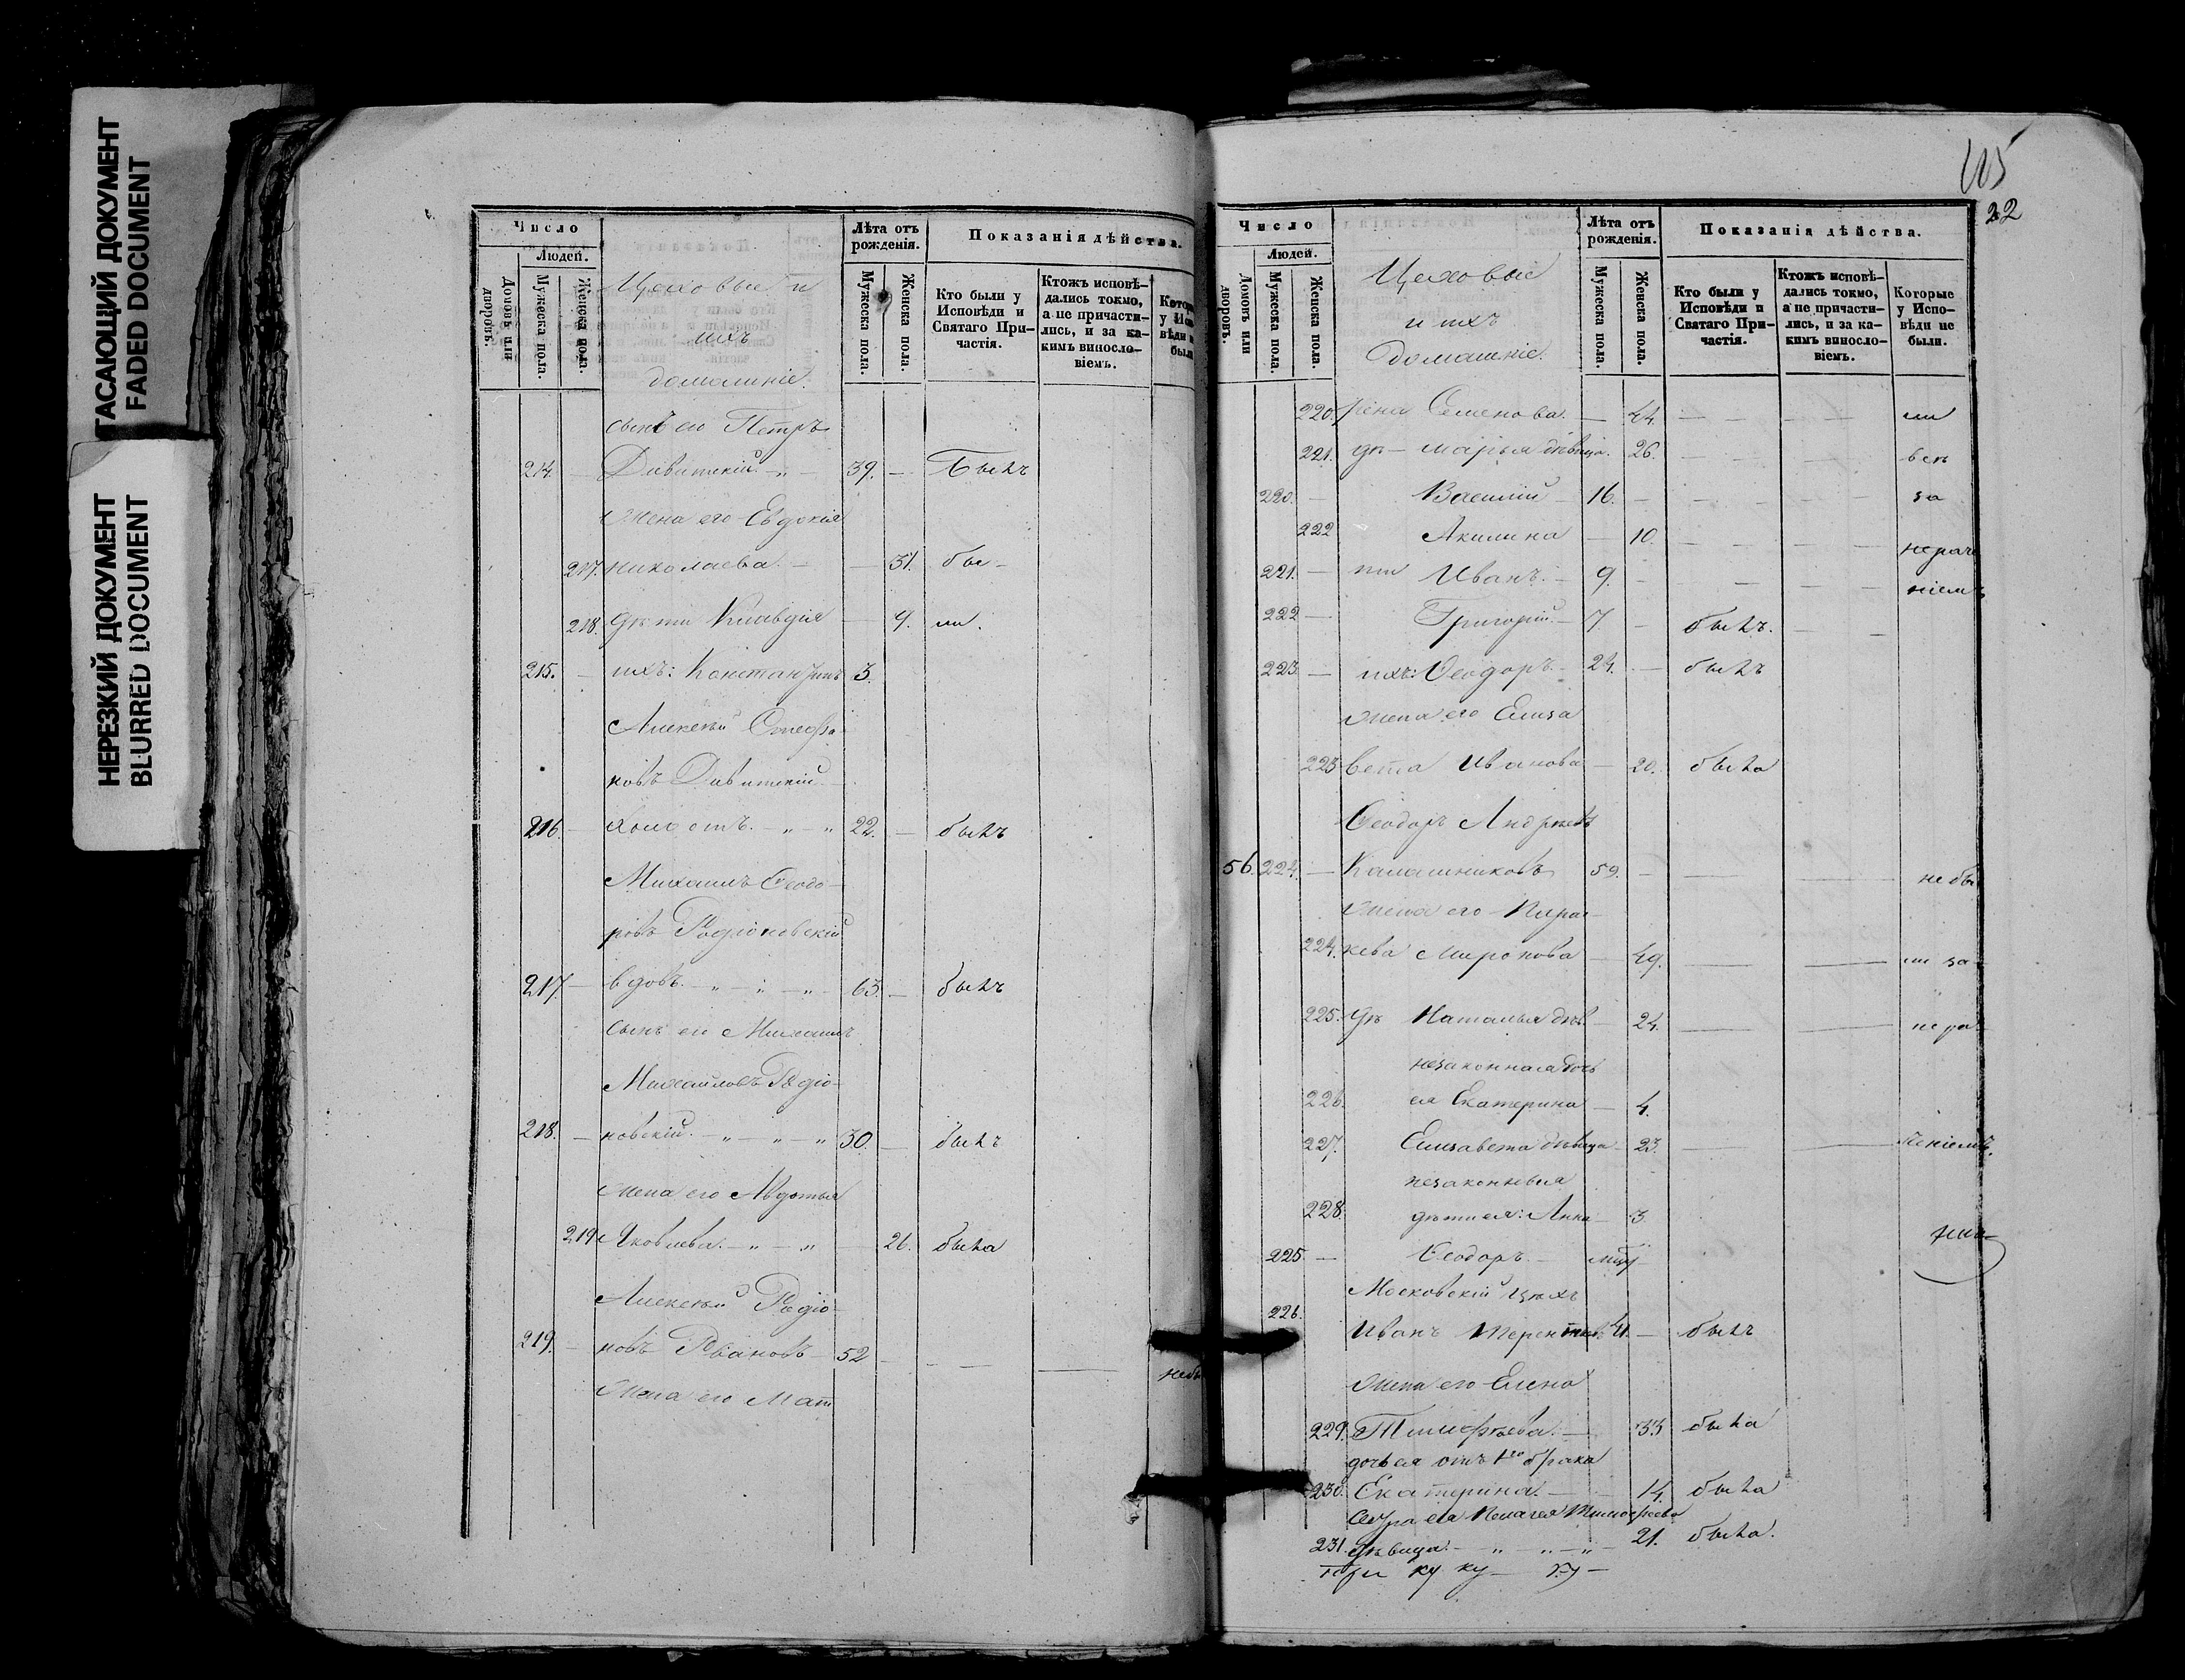 УГАСАЮЩИЙ ДОКУМЕНТ
FADED DOCUMENT
НЕРЕЗКИЙ ДОКУМЕНТ
BLURRED DOCUMENT
Число
Людей.
Домовъ или дворовъ.
Мужеска пола.
Женска пола.
Цеховые и
ихъ
домашніе.
Лѣта отъ рожденія.
Мужеска пола.
Женска пола.
Показанія дѣйства.
Кто были у Исповѣди и Святаго Причастія.
Ктожъ исповѣдались токмо, а не причастились, и за какимъ винословіемъ.
сынъ его Петръ
214. — 39. — Былъ
жена его Евдокія
217. Николаева. — — 31. бы-
218. Дѣти Клавдія — 9. ли.
215. — ихъ: Константинъ 3.
Алексѣй Стефа-
новъ
216. — холостъ. — „ — „ 22. — былъ
Михаилъ Ѳеодо-
ровъ Родіоновскій
217. — вдовъ. — „ — „ — „ 63. — былъ
сынъ его Михаилъ
Михайловъ Родіо-
218. — новскій. — „ — „ — „ 30. — былъ
жена его Авдотья
219. Яковлева. — „ — „ — 26. была
Алексѣй Родіо-
219. — новъ Ивановъ 52 — — —
жена его Мат
115
22
Число
Людей.
Домовъ или дворовъ.
Мужеска пола.
Женска пола.
Цеховые
и ихъ
домашніе.
Лѣта отъ рожденія.
Мужеска пола.
Женска пола.
Показанія дѣйства.
Кто были у Исповѣди и Святаго Причастія.
Ктожъ исповѣдались токмо, а не причастились, и за какимъ винословіемъ.
Которые у Исповѣди не были.
220. рена Семенова. — 44. — — ли
221. дѣ- Марья дѣвица. 26. — —
220. — Василій — 16. — — — за
222 Акилина — 10. — — нераче
221. — ти Иванъ. — 9. — — — ніемъ
222 — Григорій. — 7. — былъ. — —
223 — ихъ: Ѳеодоръ. — 24. — былъ
жена его Елиза
223 вета Иванова — 20. была
Ѳеодоръ Андреевъ
56. 224. — Калашниковъ 59. — — — не бы
жена его Парас-
224. кева Миронова — 49. — — ли за
225. Дѣ Наталья дѣв. — 24. — — нера
незаконная дочь
226. ея Екатерина — 4.
227. Елизавета дѣвица — 23. — — ченіемъ.
незаконныя
228. дѣти ея: Анна — 3
225. — Ѳеодоръ. —
Московскій цехъ
226. Иванъ Терентьевъ 41. — былъ
жена его Елена
229. Тимофѣева. — 33 была
дочь ея отъ 1го брака
230. Екатерина. — 14. была
Сестра ея Пелагея Тимофеева
231. дѣвица. — „ — „ — „ — 21. была.